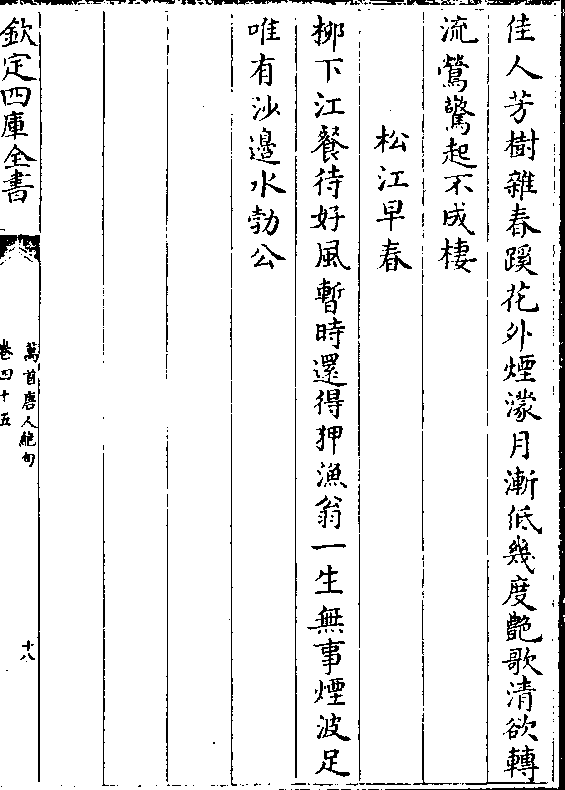 佳人芳樹雜春蹊花外煙濛月漸低幾度艶歌清欲轉
流鶯驚起不成棲
松江早春
柳下江餐待好風暫時還得狎漁翁一生無事煙波足
唯有沙邉水勃公
欽定四庫全書
萬首唐人絶句
卷四十五
十八